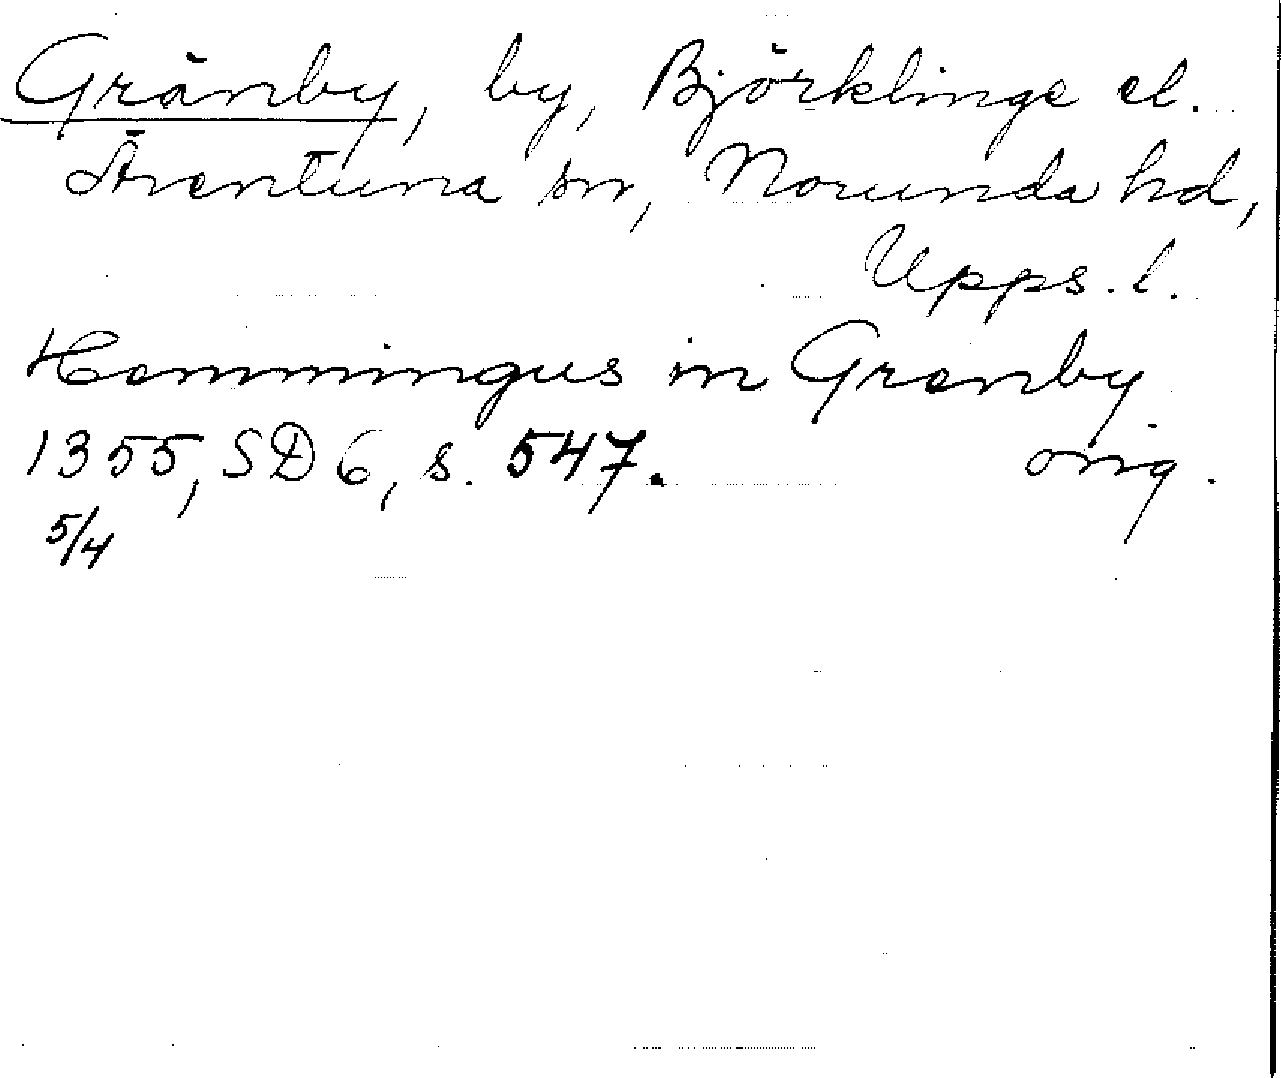 Gränby, by, Björklinge el.
Ärentuna sn, Norunda hd,
Upps. l.
Hemmingus in Grenby.
1355, SD 6, s. 547. orig.
5/4